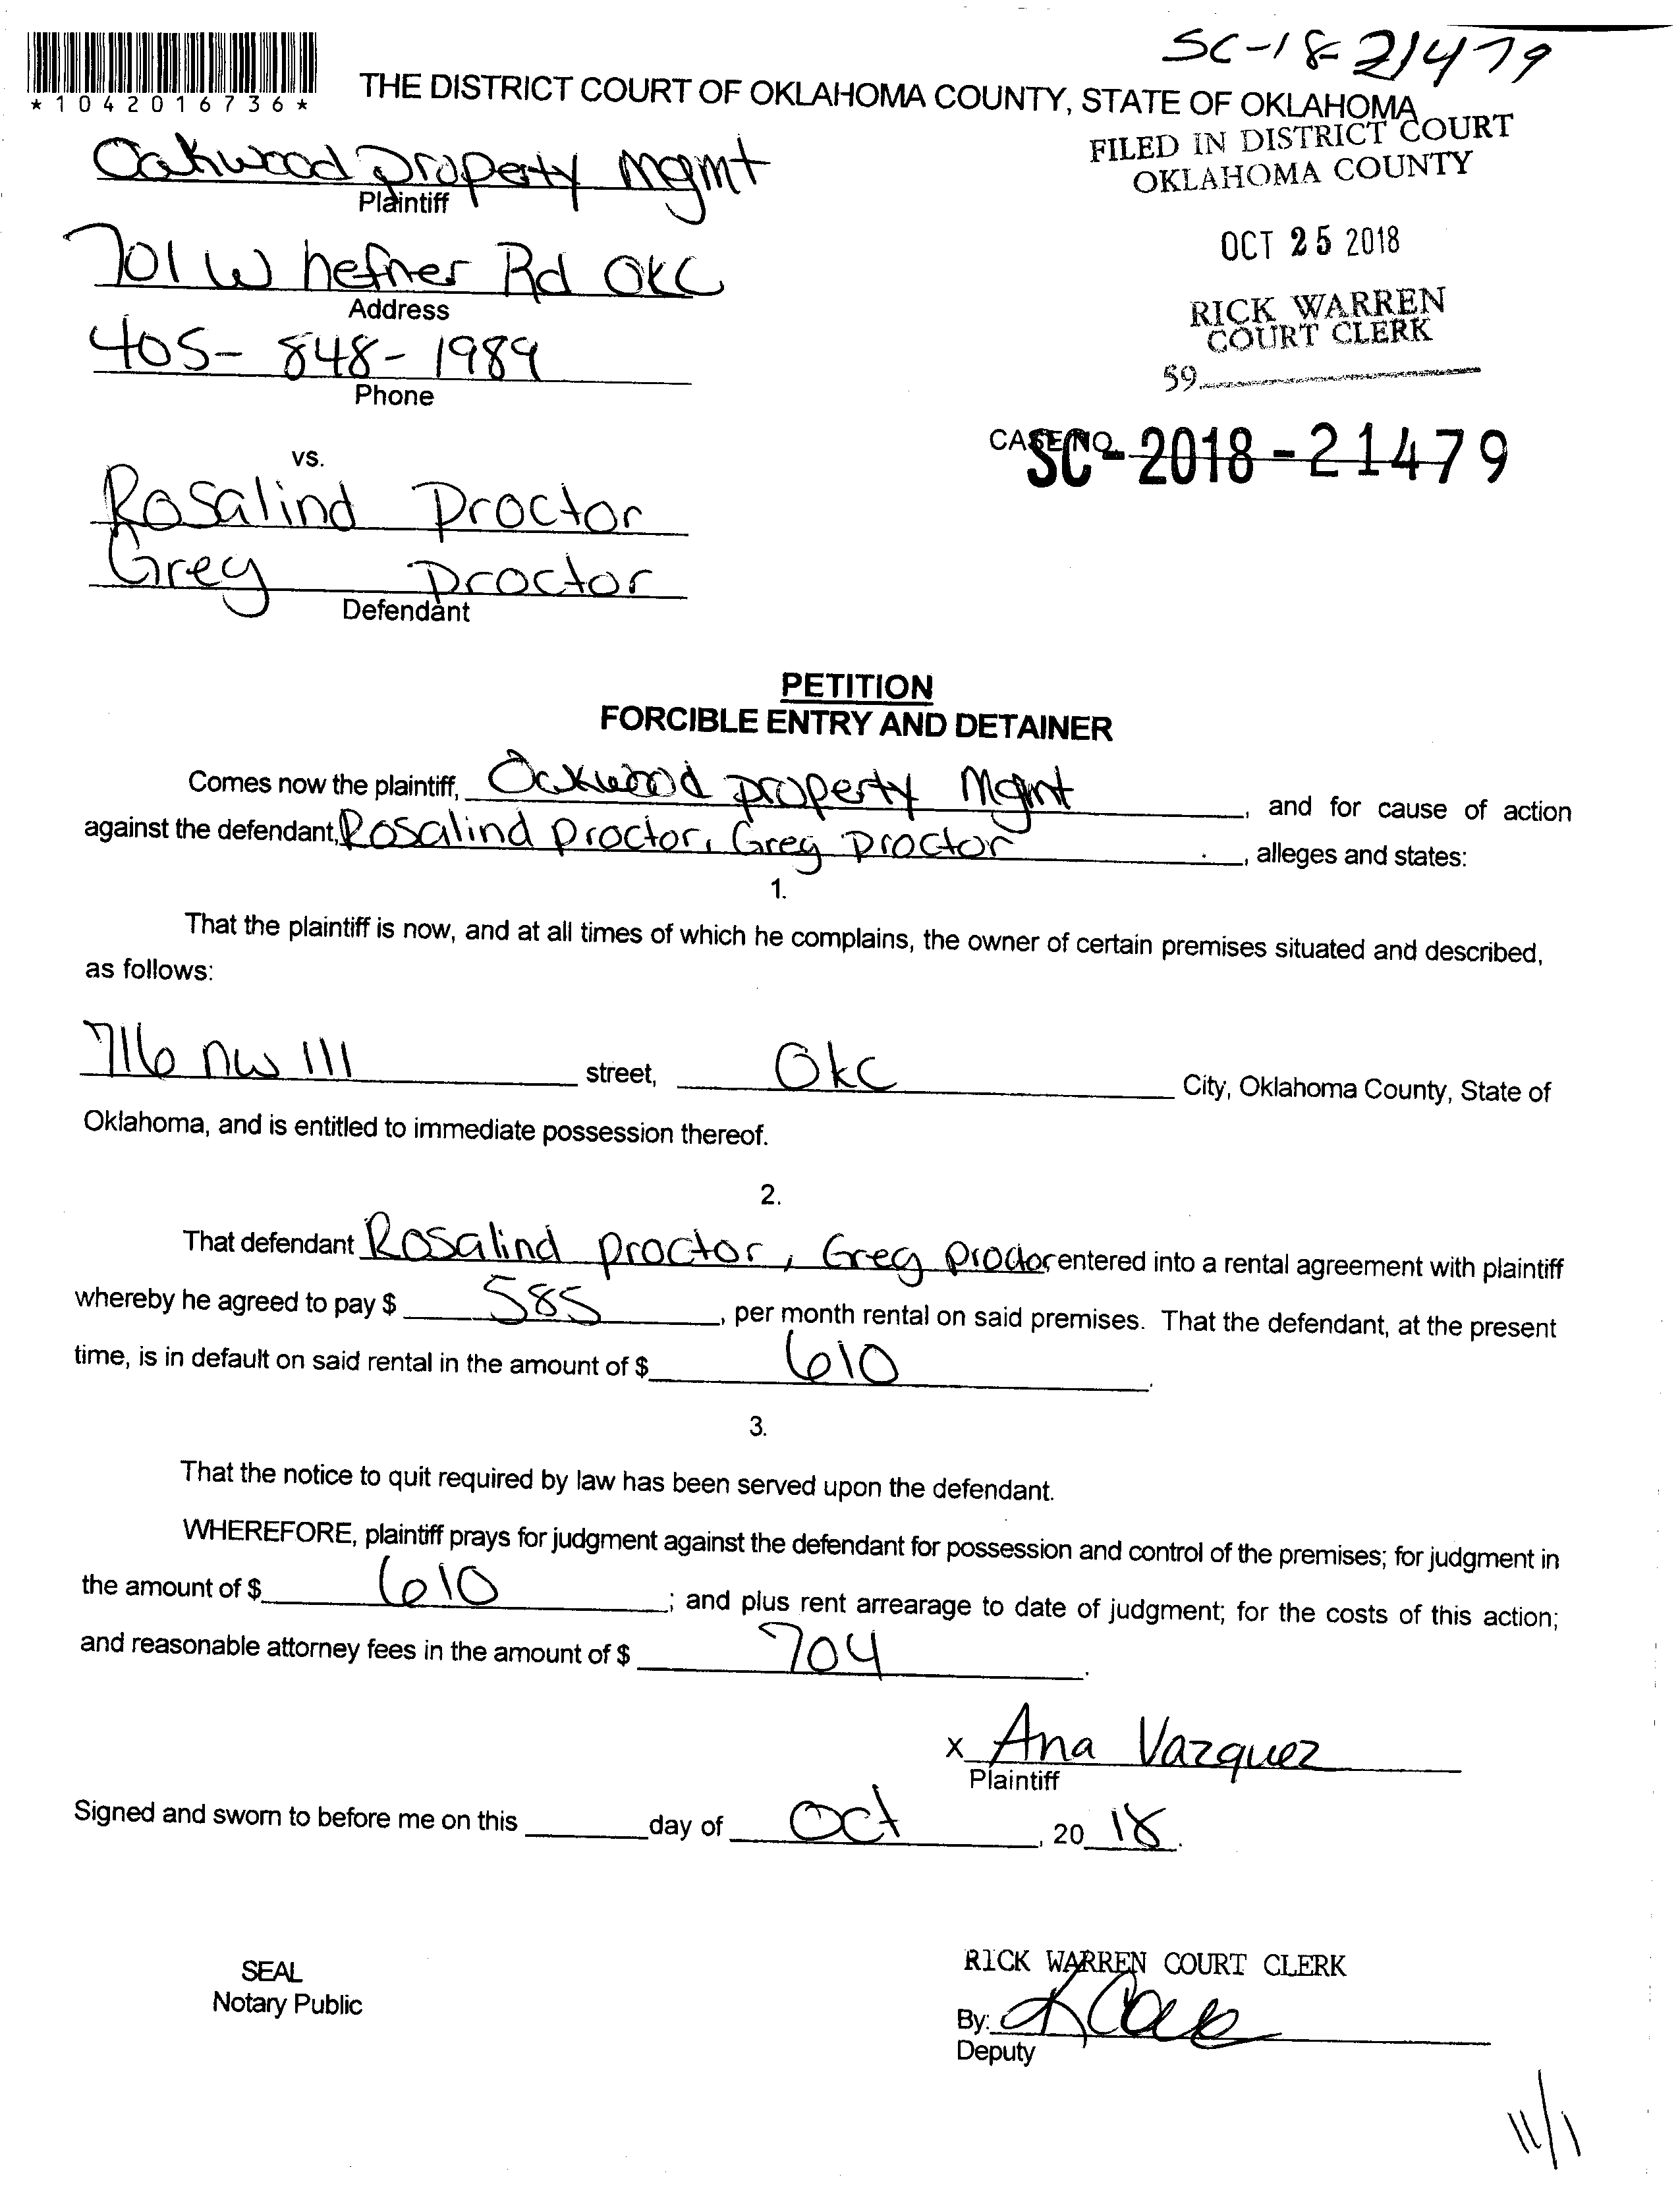 SC-18-21479
*1042016736*
THE DISTRICT COURT OF OKLAHOMA COUNTY, STATE OF OKLAHOMA
FILED IN DISTRICT COURT
OKLAHOMA COUNTY
Oakwood Property Mgmt
Plaintiff
OCT 25 2018
701 W hefner Rd OKC
Address
RICK WARREN
COURT CLERK
405-848-1989
Phone
59
CASE NO.
SC-2018-21479
vs.
Rosalind Proctor
Greg Proctor
Defendant
PETITION
FORCIBLE ENTRY AND DETAINER
Comes now the plaintiff, Oakwood property Mgmt, and for cause of action
against the defendant, Rosalind Proctor, Greg Proctor, alleges and states:
1.
That the plaintiff is now, and at all times of which he complains, the owner of certain premises situated and described,
as follows:
716 NW 111 street, OKC City, Oklahoma County, State of
Oklahoma, and is entitled to immediate possession thereof.
2.
That defendant Rosalind proctor, Greg Proctor entered into a rental agreement with plaintiff
whereby he agreed to pay $ 585, per month rental on said premises. That the defendant, at the present
time, is in default on said rental in the amount of $ 610.
3.
That the notice to quit required by law has been served upon the defendant.
WHEREFORE, plaintiff prays for judgment against the defendant for possession and control of the premises; for judgment in
the amount of $ 610; and plus rent arrearage to date of judgment; for the costs of this action;
and reasonable attorney fees in the amount of $ 704.
x Ana Vazquez
Plaintiff
Signed and sworn to before me on this day of Oct, 20 18.
SEAL
Notary Public
RICK WARREN COURT CLERK
By:
Deputy
11/1